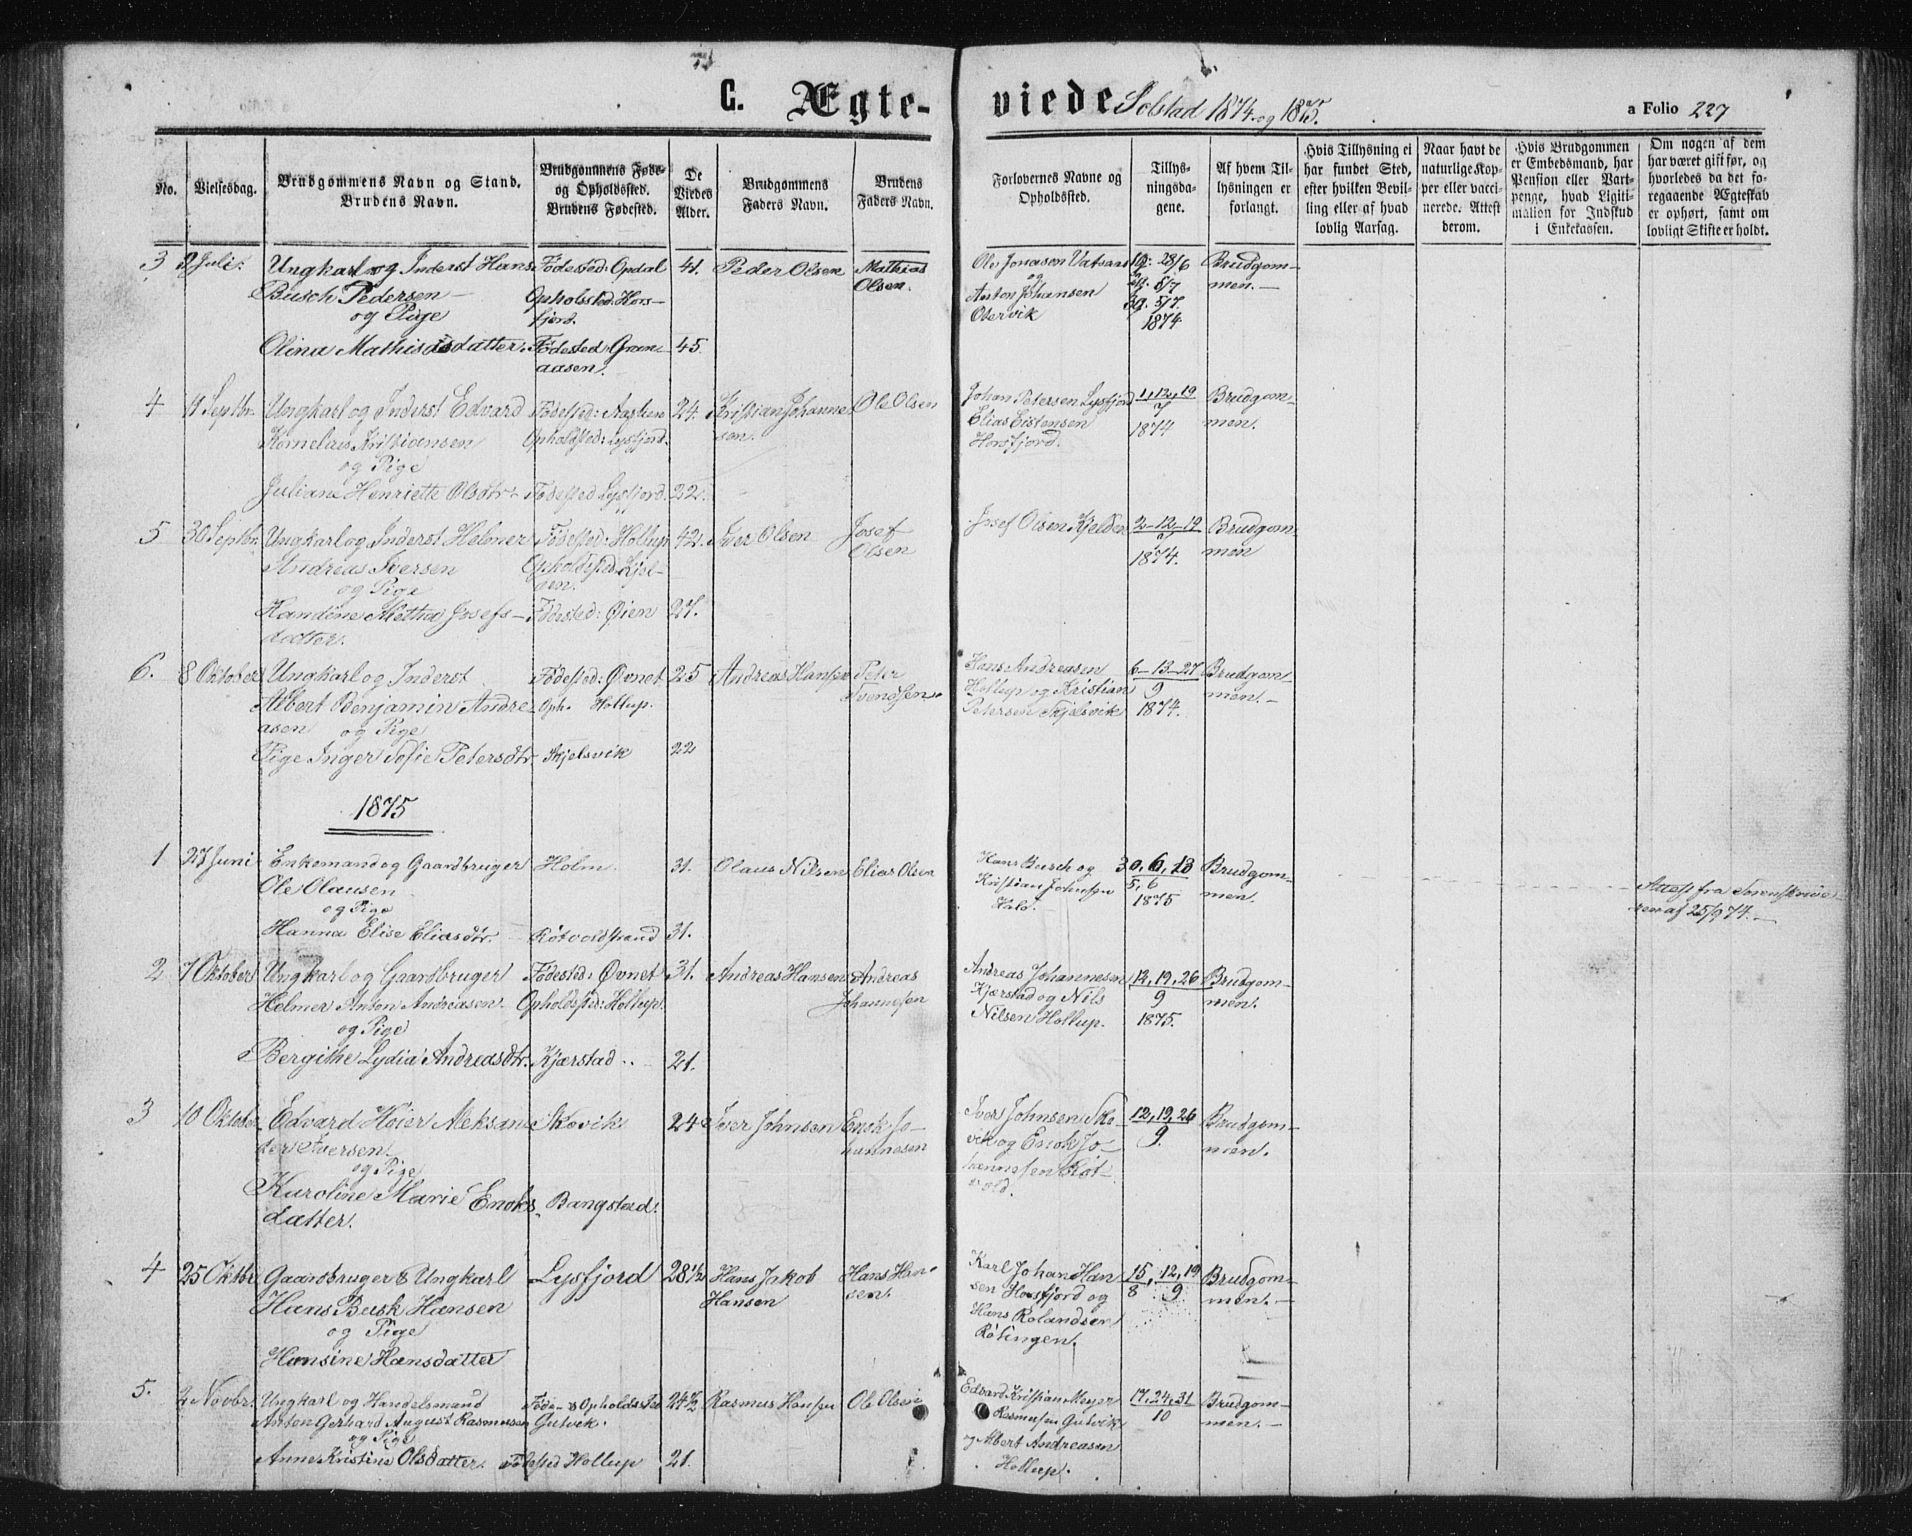 C. Ægte-viede Solstad 1874 og 1875.
a Folio 227
No.
Vielsesdag.
Brudgommens Navn og Stand.
Brudens Navn.
Brudgommens Føde-
og Opholdssted.
Brudens Fødested.
De
Viedes
Alder.
Brudgommens
Faders Navn.
Brudens
Faders Navn.
Forlovernes Navne og
Opholdssted.
Tillys-
ningsda-
gene.
Af hvem Til-
lysningen er
forlangt.
Hvis Tillysning ei
har fundet Sted,
efter hvilken Bevil-
ling eller af hvad
lovlig Aarsag.
Naar havt de
naturlige Kop-
per eller vacci-
nerede. Attest
derom.
Hvis Brudgommen
er Embedsmand, har
Pension eller Vart-
penge, hvad Ligiti-
mation for Indskud
i Enkekassen.
Om nogen af dem
har været gift før, og
hvorledes da det fo-
regaaende Ægteskab
er ophørt, samt om
lovligt Skifte er holdt.
3 Juli. Ungkarl og Inderst Hans Fødested: Opdal 41. Peder Olsen Mathias Ole Jonasen Vatsaas 28/6 Brudgom-
Busch Pedersen Opholssted: Hors- Olsen. og 5/7 men.
og Pige fjord. Anton Johansen 5/7.
Otervik 1874
Olina Mathisdatter. Fødested: Gran- 45.
aasen.
4 Septbr. Ungkarl og Inderst Edvard Fødested: 24. Kristian Johanne- Ole Olsen Johan Petersen Lysfjord 1, 12, 19 Brudgom-
Kornelius Kristiansen Opholdsted: Lysfjord. sen. Elias Eistensen 7 men.
og Pige Horsfjord. 1874
Juliane Henriette Olsdtr Fødested Lysfjord. 22.
5 30 Septbr. Ungkarl og Inderst Helmer Fødested: Hollup 42. Iver Olsen Josef Josef Olsen Kjelden 2-12-19 Brudgom-
Andreas Iversen Opholdsted: Kjel- Olsen 1874. men
og Pige den.
Handine Metha Josefs- Fødested: Øien 27.
datter.
6. 8 Oktober Ungkarl og Inderst Fødested: Øvnet 25 Andreas Hansen Peter Hans Andreasen 6-13-27 Brudgom-
Albert Benjamin Andre- Oph. Hollup. Svendsen. Hollup og Kristian 9 men.-
asen og Pige Petersen Skjelsvik 1874.
Pige Inger Sofie Petersdtr Skjelsvik 22
1875
1 27 Juni Enkemand og Gaardbruger Holm 31. Olaus Nilsen Elias Olsen Hans Busch og 30, 6, 13 Brudgom-
Ole Olausen Kristian Johnsen 5, 6 men.
og Pige Hald. 1875
Attest fra Sorenskrive-
ren af 25/9 74.
Hanna Elise Eliasdtr. Røtvoldstrand 31.
2 7 Oktober Ungkarl og Gaardbruger Fødested: Øvnet 31. Andreas Hansen Andreas Andreas Johannesen 12, 19, 26 Brudgom-
Helmer Anton Andreasen. Opholdsted: Hollup. Johannesen Kjærstad og Nils 9 men.
og Pige Nilsen Hollup. 1875.
Bergithe Lydia Andreasdtr. Kjærstad 21.
3 10 Oktober Edvard Høier Aleksan- Skovik 24 Iver Johnsen Enok Jo- Iver Johnsen Sko- 12, 19, 26 Brudgom-
der Iversen. hannesen vik og Enok Jo- 9. men.
og Pige hannesen Røt-
vold.
Karoline Marie Enoks- Bangstad.
datter.
4 25 Oktbr Gaardbruger & Ungkarl Lysfjord 28 1/2 Hans Jakob Hans Han- Karl Johan Han- 15, 12, 19 Brudgom-
Hans Busk Hansen Hansen sen. sen Horsfjord og 8 9 men.-
og Pige Hans Rolandsen
Hansine Hansdatter Røtingen.
5. 2 Novbr. Ungkarl og Handelsmand Føde- & Opholdssted 24 1/2 Rasmus Hansen Ole Olsen Edvard Kristian Meyer 17, 24, 31 Brudgom-
Anton Gerhard August Rasmusen Gutvik. Rasmusen Gutvik 10 men.-
og Pige og Albert Andreasen
Anne Kristine Olsdatter. Fødested Hollup 21. Hollup.